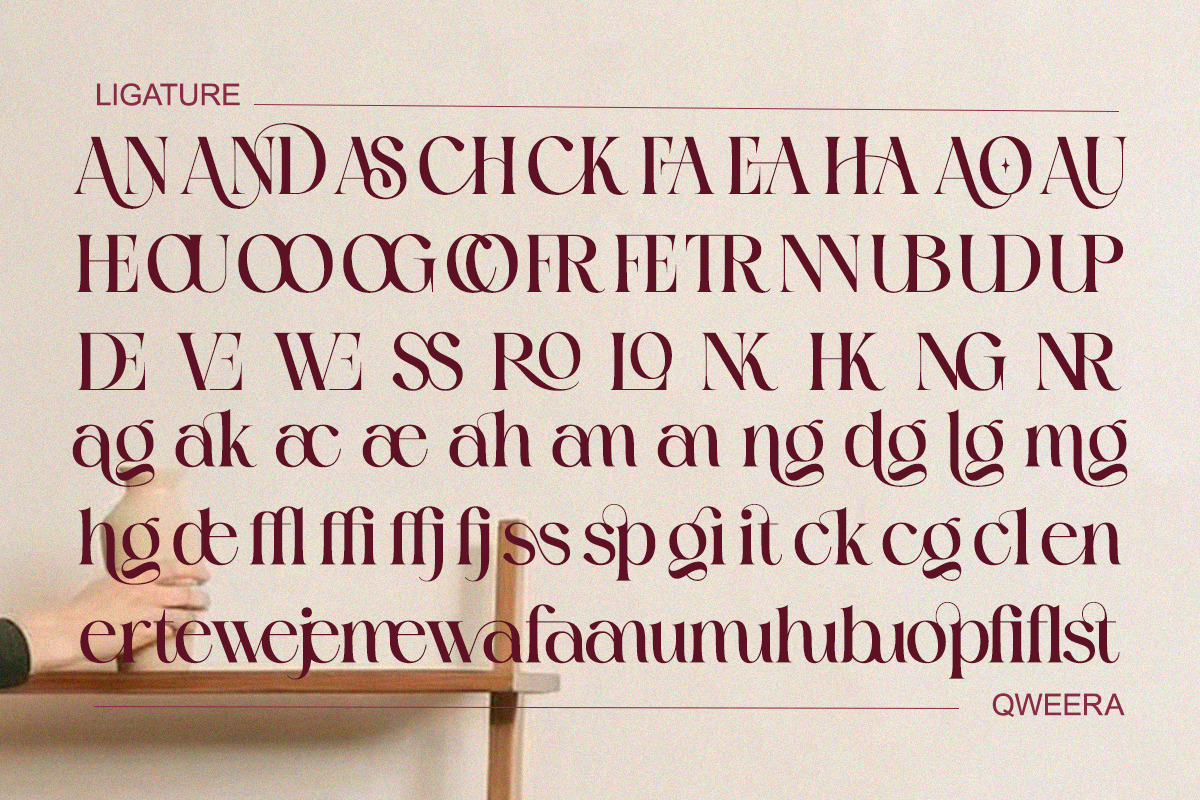 LIGATURE
AN AND AS CH CK FA EA HA AO AU
HE OU OO OG CO FR FE TR NN UB UD UP
DE VE WE SS RO LO NK HK NG NR
ag ak ac æ ah am an ng dg lg mg
hg de ffl ffi ffj fj ss sp gi it ck cg cl en
er te we je me ew a fa am um mu hu bu op fi fl st
QWEERA